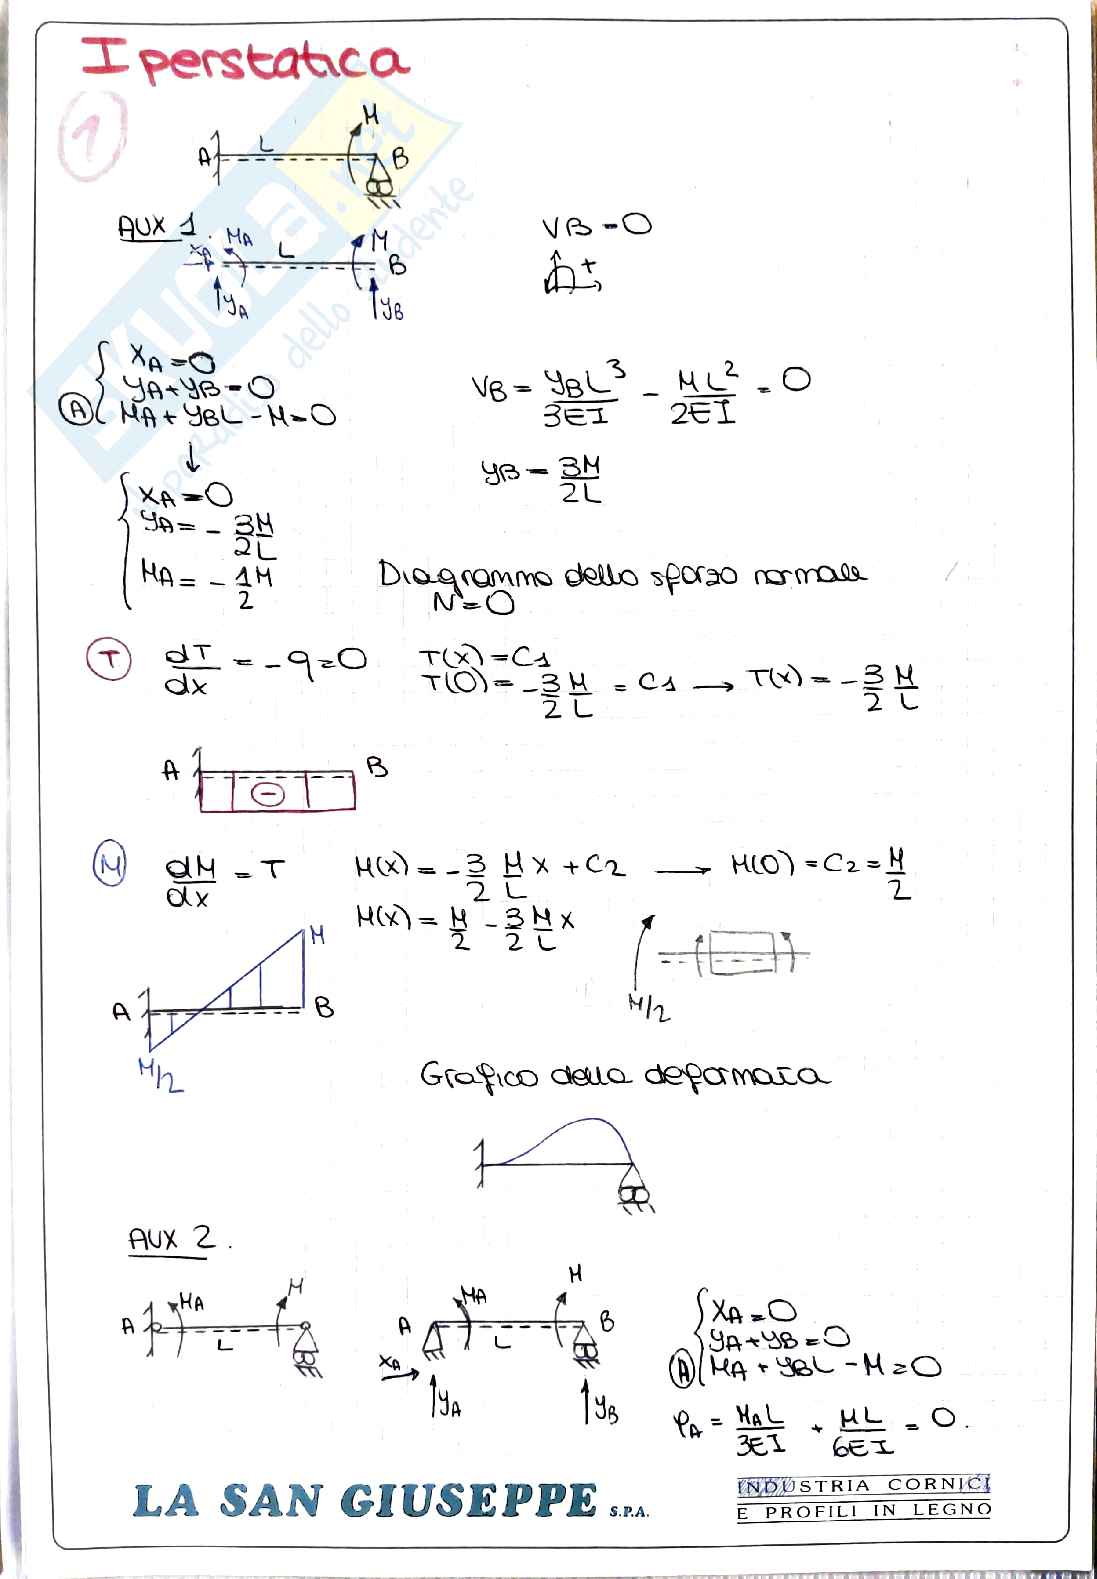 Iperstatica
1
M
A L B
AUX 1.
XA MA L M B
YA YB
VB = 0
+
XA = 0
YA + YB = 0
A MA + YBL - M = 0
VB = YBL³/3EI - ML²/2EI = 0
YB = 3M/2L
XA = 0
YA = - 3M/2L
MA = - 1M/2
Diagramma dello sforzo normale
N = 0
T dT/dx = -q = 0 T(x) = C1
T(0) = - 3/2 M/L = C1 → T(x) = - 3/2 M/L
A B
-
M dM/dx = T M(x) = - 3/2 M/L x + C2 → M(0) = C2 = M/2
M(x) = M/2 - 3/2 M/L x
M
A B
M/2
M/2
Grafico della deformata
AUX 2.
A MA L M
A MA L M B
XA
YA YB
XA = 0
YA + YB = 0
A MA + YBL - M = 0
φA = MAL/3EI + ML/6EI = 0.
LA SAN GIUSEPPE S.P.A.
INDUSTRIA CORNICI
E PROFILI IN LEGNO
SKUOLA.net
il paradiso dello studente